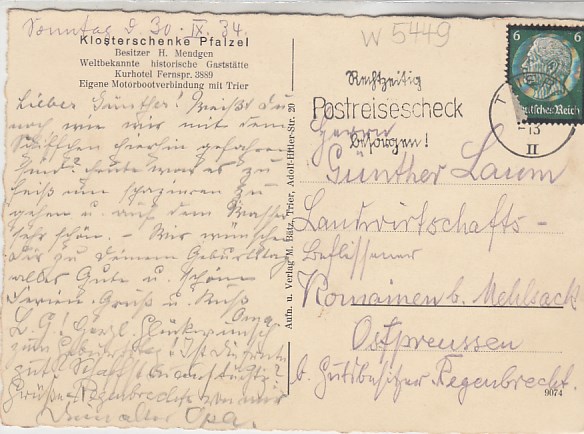 Sonntag d. 30. IX. 34.
Klosterschenke Pfalzel
Besitzer H. Mendgen
Weltbekannte historische Gaststätte
Kurhotel Fernspr. 3889
Eigene Motorbootverbindung mit Trier
Lieber Günther! Weißt du
noch wie wir mit dem
Schiffchen hierhin gefahren
sind? heute war es zu
heiß um spazieren zu
gehen u. auf dem Wasser
sehr schön. - Wir wünschen
Dir zu deinem Geburtstag
alles Gute u. schöne
Ferien. Gruß u. Kuß
Oma.
L. G! Herzl. Glückwunsch
zum Geburtstag! Ist die
gut
Grüße Regenbrechts von mir
Opa.
Aufn. u. Verlag M. Bätz, Trier, Adolf-Hitler-Str. 20
W 5449
6 6
Deutsches Reich
Rechtzeitig
Postreisescheck
besorgen!
T
-13
II
Herrn
Günther Laum
Landwirtschafts-
Beflissener
Romainen b. Mehlsack
Ostpreussen
b. Gutsbesitzer Regenbrecht.
9074